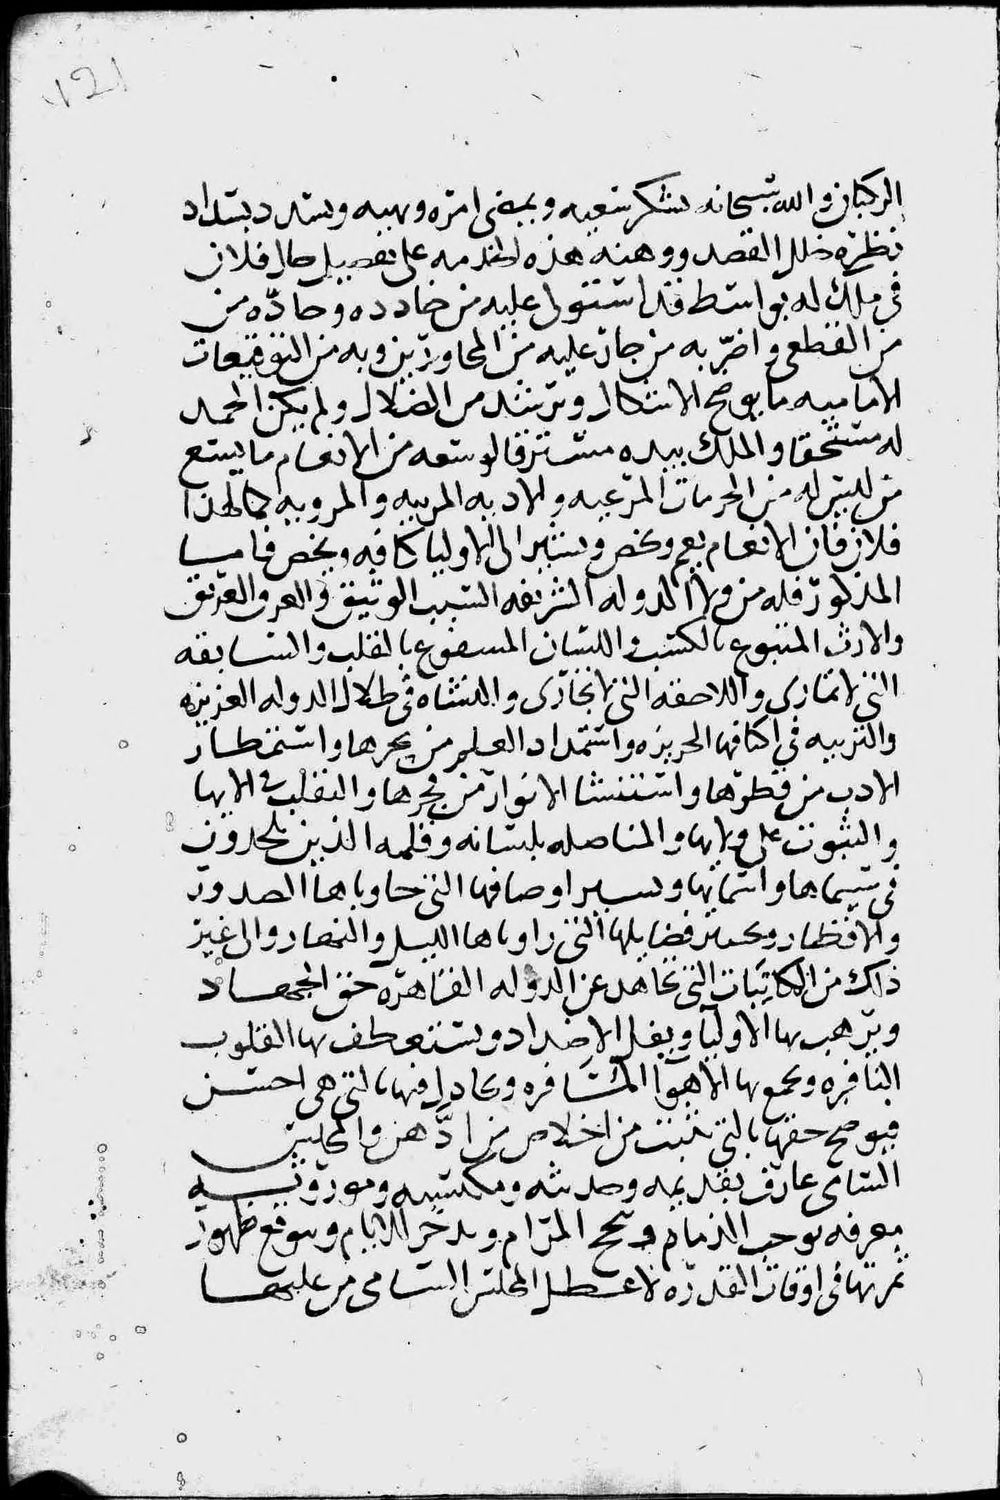 121
الركبان والله سبحانه يشكر سعيه ويمضى امره ونهيه ويسدد بسداد
نظره خلل القصد ووهنه هذه الخدمه على تفصيل حال فلان
فى ملك له بواسط قد استولى عليه من خادده وحادّه من
من القطعى واضرّ به من جار عليه من المجاورين وبه من التوقيعات
الاماميه ما يوضح الاشكال ويرشد من الضلال ولم يكن الحمد
له مستحقا والملك بيده مسترقا لوسعه من الانعام ما يسع
من ليس له من الحرمات المرعيه والادبه المربيه والمرويه كما لهذا
فلان فان الانعام يعم ويخص ويشير الى الاوليا كافه ويخص فاما
المذكور فله من ولا الدوله الشريفه السبب الوثيق والعرق العريق
والارث المتبوع بالكسب واللسان المشفوع بالقلب والسابقه
التى لا تمارى واللاحقه التى لا تجارى والنشاه فى ظلال الدوله العزيزه
والتربيه فى اكنافها الحريزه واستمداد العلم من بحرها واستمطار
الادب من قطرها واستنشا الانوار من فجرها والتقلب فى الايها
والثبوت على ولايها والمناصله بلسانه وقلمه الذين يلحدون
فى سيماها واسمائها وسير اوصافها التى حاوياها الصدور
والاقطار وفضايلها التى راوياها الليل والنهار والى غير
ذلك من المكاتبات التى تجاهد عن الدوله القاهره حق الجهاد
ويرهب بها الاوليا ويفل الاضداد ويستعطف بها القلوب
النافره ويجمع بها الاهوا المتنافره ويجادل فيها بالتى هى احسن
فيوضح حقها بالتى تثبت من اخلاص من والمجلس
السامى عارف بقديمه وحديثه ومكتسبه وموروثه
معرفه توجب الذمام وتنجح المرام وتدخر للايام ويتوقع ظهور
ثمرتها فى اوقات القدره لا عطل المجلس السامى من عليها